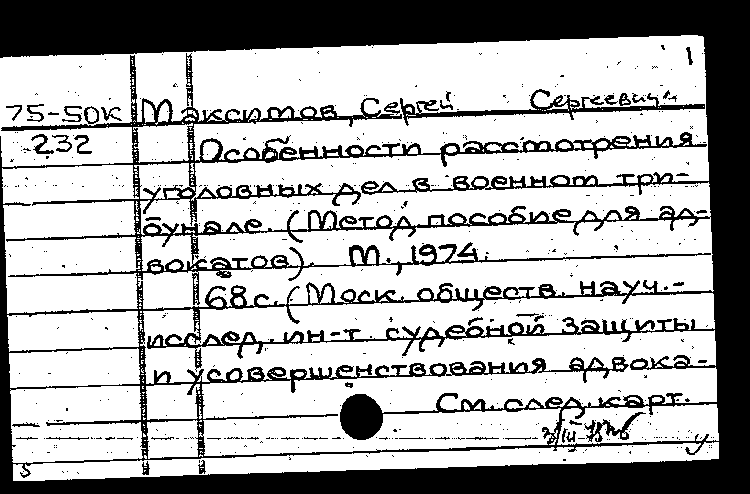 1
75-50К Максимов, Сергей Сергеевич
232 Особенности рассмотрения
уголовных дел в военном три-
бунале. (Метод. пособие для ад-
вокатов). М., 1974.
68 с. (Моск. обществ. науч.-
исслед. ин-т судебной защиты
и усовершенствования адвока-
См. след. карт.
у
5